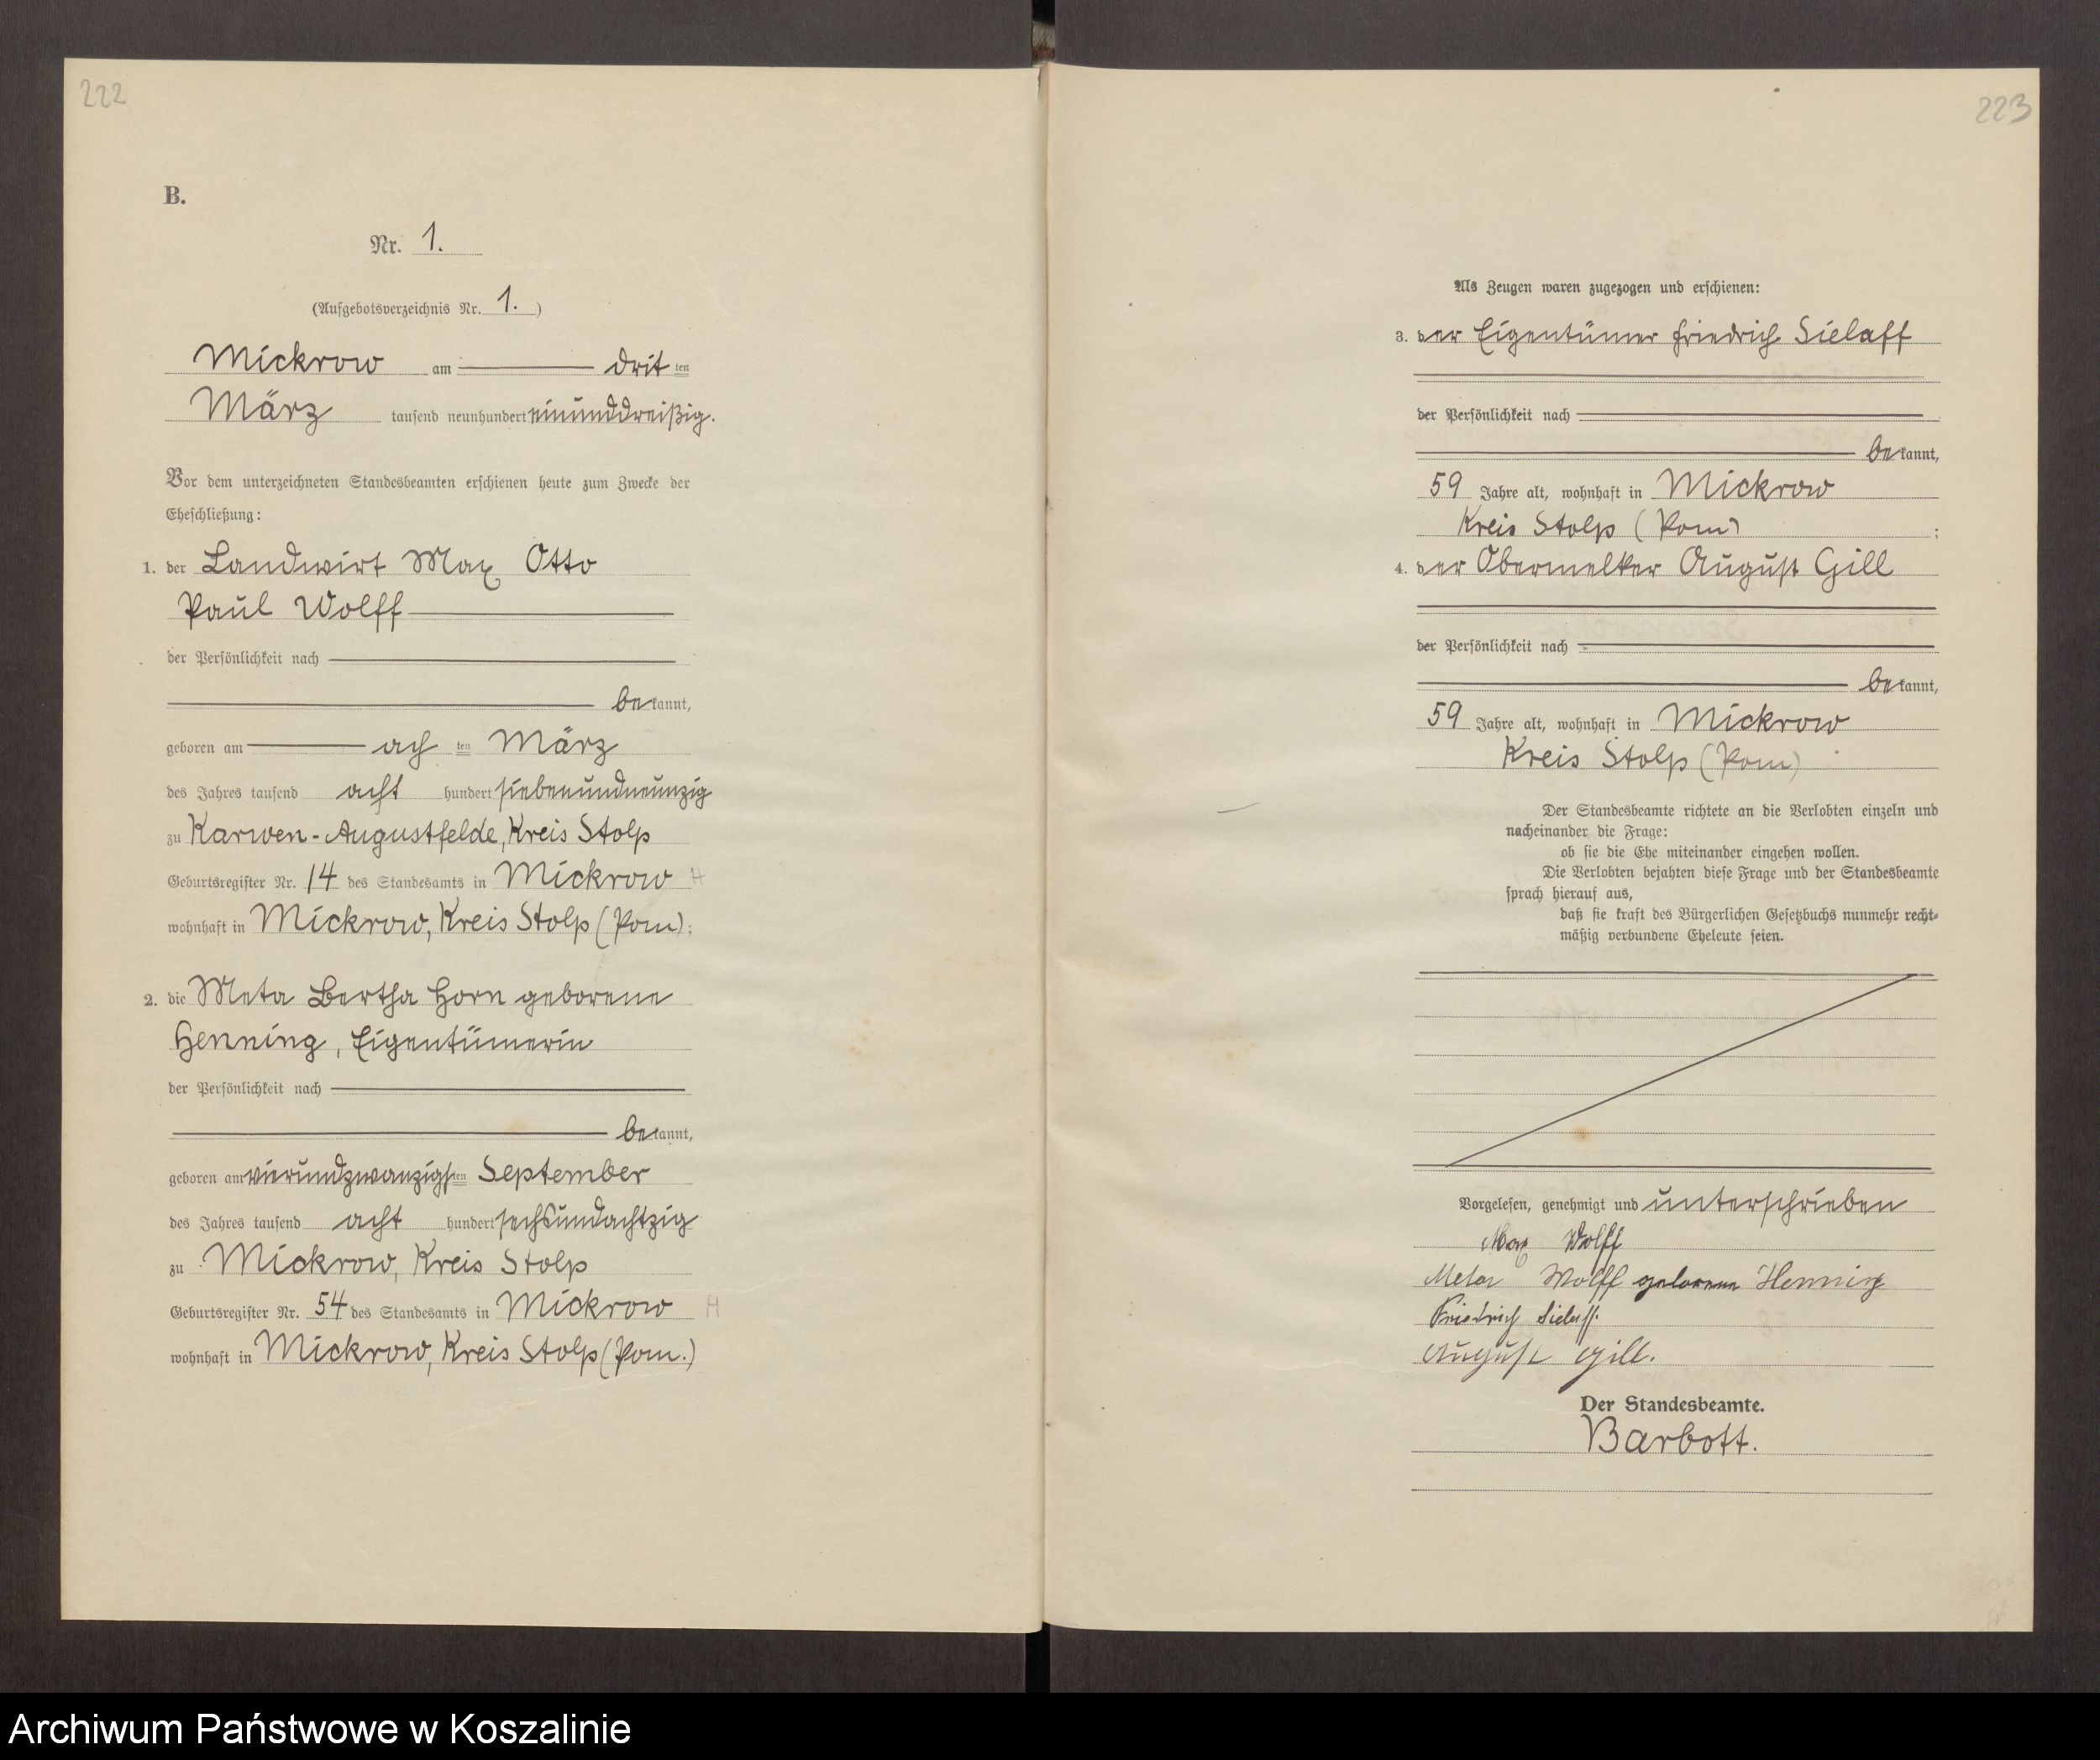 222
B.
Nr. 1.
(Aufgebotsverzeichnis Nr. 1. )
Mickrow am drit ten
März tausend neunhundert einunddreißig.
Vor dem unterzeichneten Standesbeamten erschienen heute zum Zwecke der
Eheschließung:
1. der Landwirt Max Otto
Paul Wolff
der Persönlichkeit nach
be kannt,
geboren am ach ten März
des Jahres tausend acht hundert siebenundneunzig
zu Karwen-Augustfelde, Kreis Stolp
Geburtsregister Nr. 14 des Standesamts in Mickrow H
wohnhaft in Mickrow, Kreis Stolp (Pom);
2. die Meta Bertha Horn geborene
Henning, Eigentümerin
der Persönlichkeit nach
be kannt,
geboren am vierundzwanzigs ten September
des Jahres tausend acht hundert sechsundachtzig
zu Mickrow, Kreis Stolp
Geburtsregister Nr. 54 des Standesamts in Mickrow H
wohnhaft in Mickrow, Kreis Stolp (Pom.)
223
Als Zeugen waren zugezogen und erschienen:
3. der Eigentümer Friedrich Sielaff
der Persönlichkeit nach
be kannt,
59 Jahre alt, wohnhaft in Mickrow
Kreis Stolp (Pom) ;
4. der Obermelker August Gill
der Persönlichkeit nach
be kannt,
59 Jahre alt, wohnhaft in Mickrow
Kreis Stolp (Pom)
Der Standesbeamte richtete an die Verlobten einzeln und
nacheinander die Frage:
ob sie die Ehe miteinander eingehen wollen.
Die Verlobten bejahten diese Frage und der Standesbeamte
sprach hierauf aus,
daß sie kraft des Bürgerlichen Gesetzbuchs nunmehr recht-
mäßig verbundene Eheleute seien.
Vorgelesen, genehmigt und unterschrieben
Max Wolff
Meta Wolff geborene Henning
Friedrich Sielaff.
August Gill.
Der Standesbeamte.
Barbott.
Archiwum Państwowe w Koszalinie